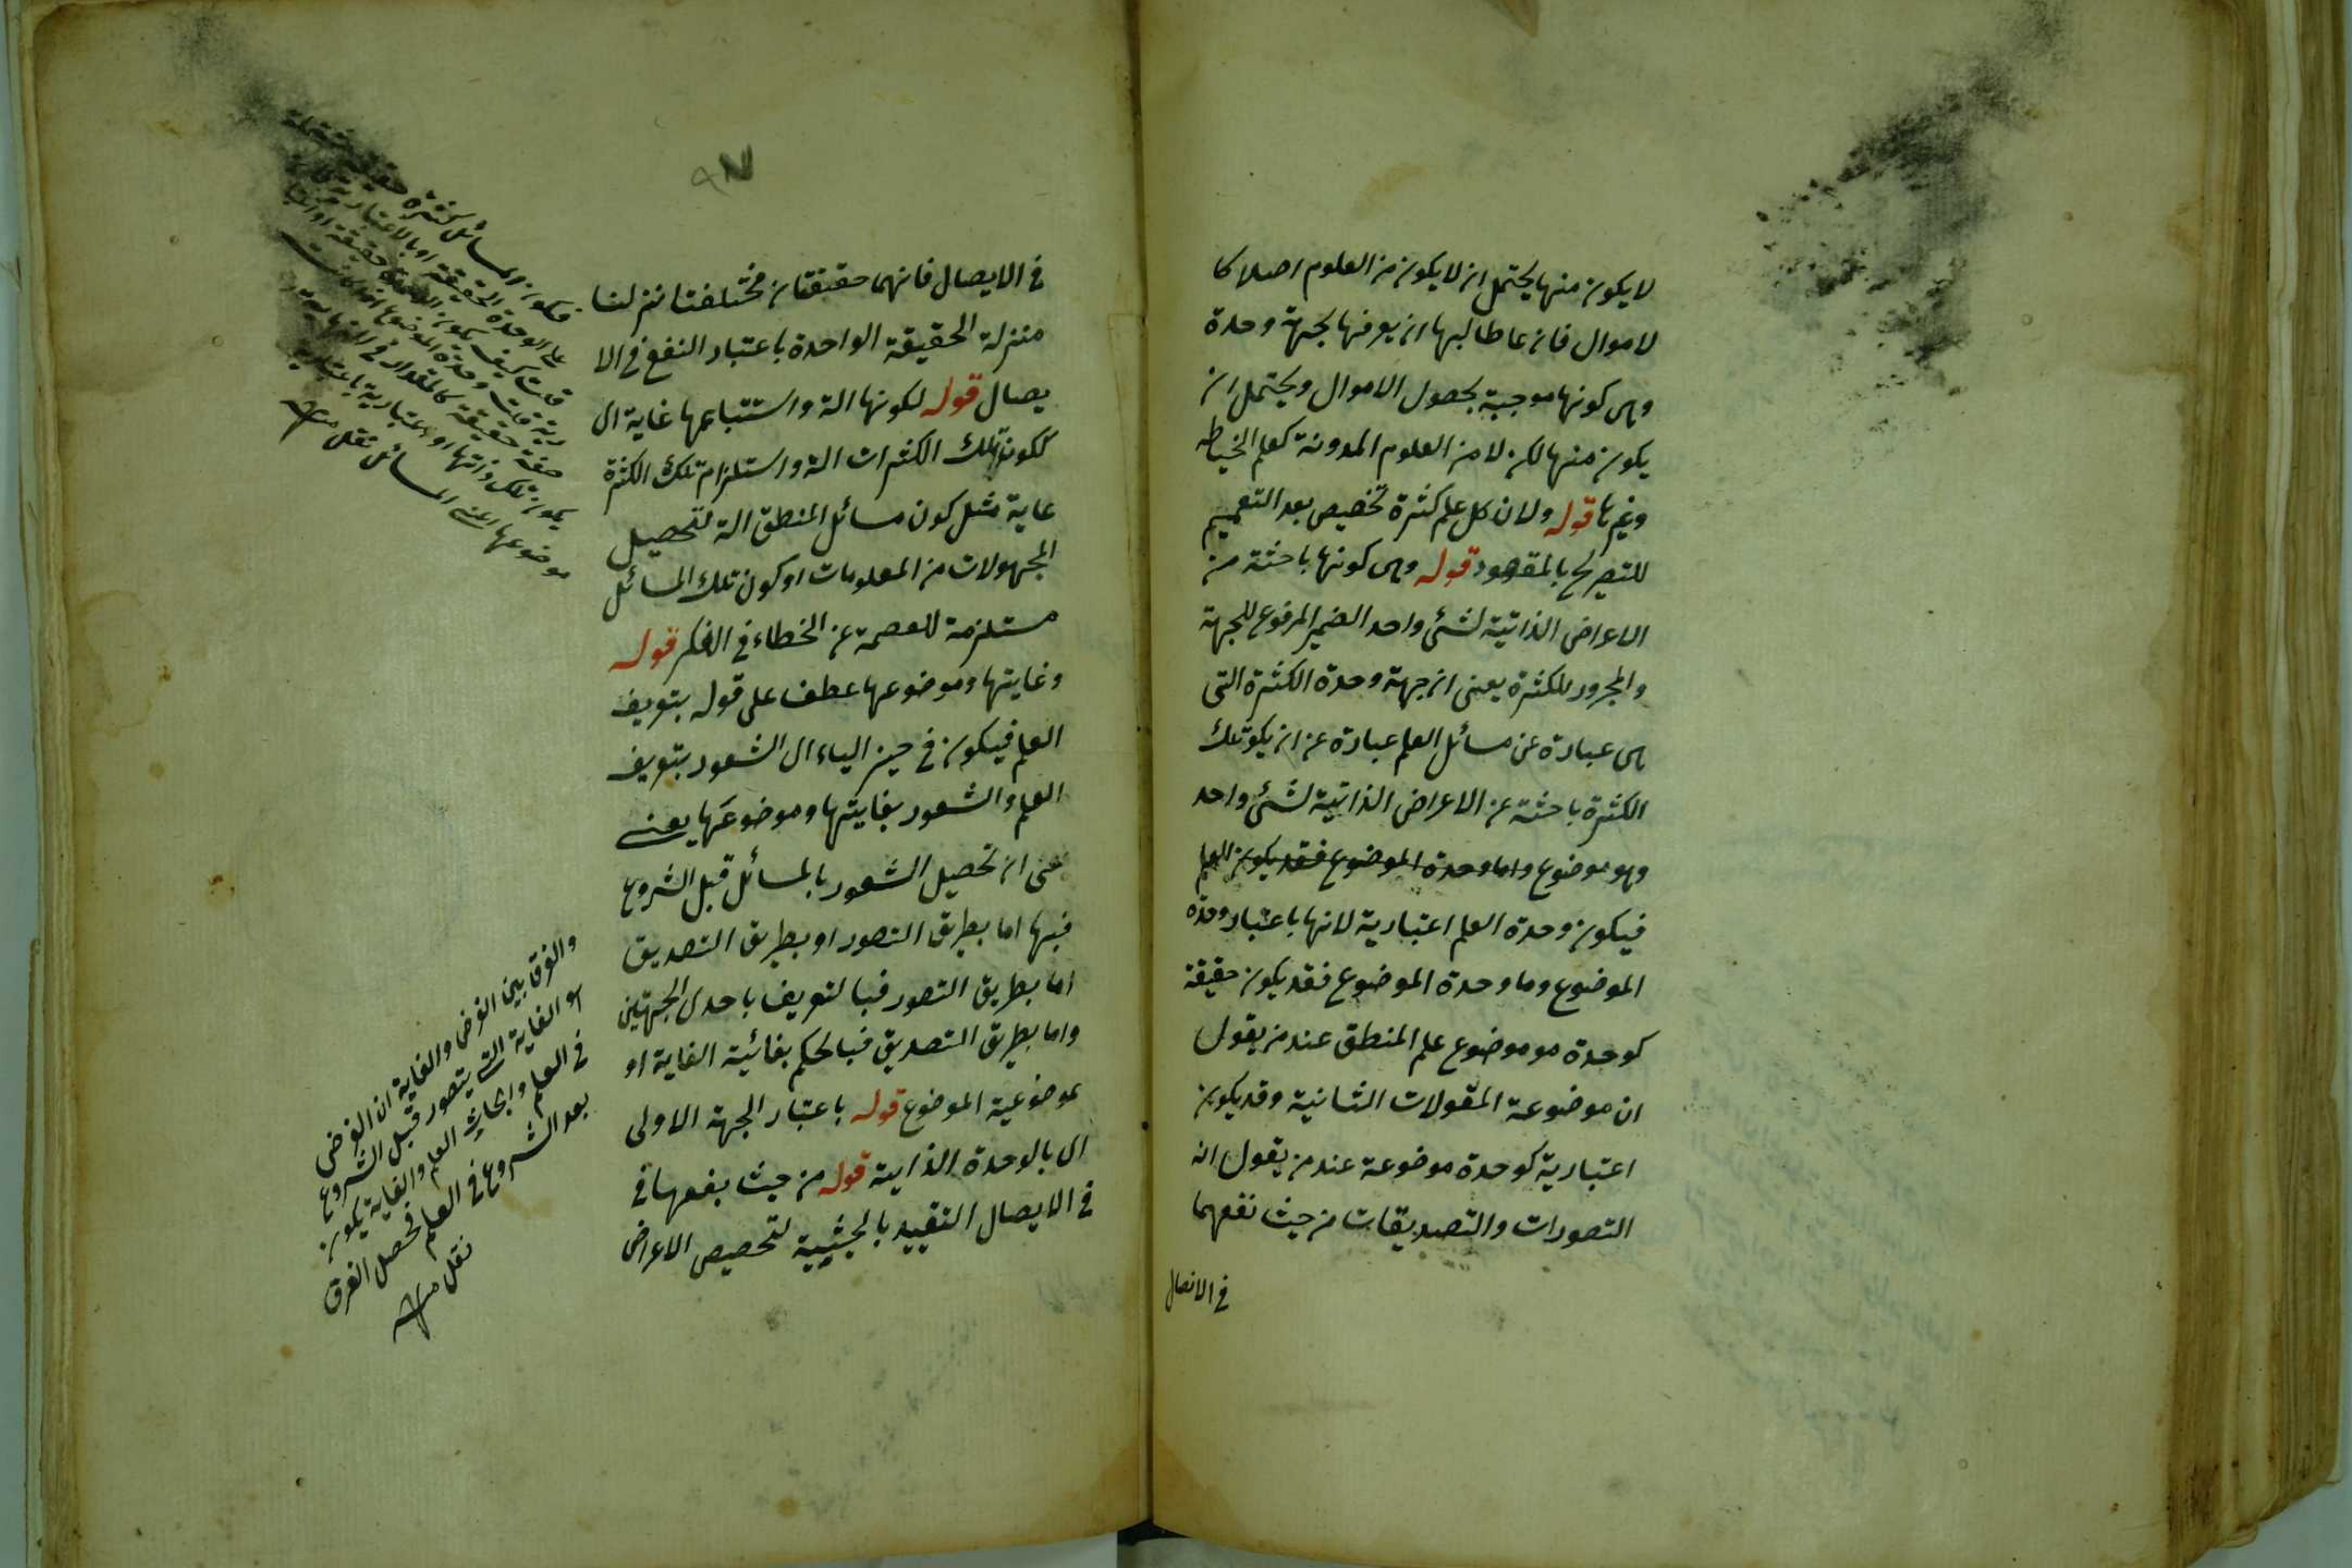 لا يكون منها يحتمل ان لا يكون من العلوم اصلا كا
لاموال فان عا طالبها ان يعرفها بجهة وحدة
وهى كونها موجبة بحصول الاموال ويحتمل ان
يكون منها لكن لا من العلوم المدونة كعلم الخياطه
وغيرها قوله ولان كل علم كثرة تخصيص بعد التعميم
للتصريح بالمقصود قوله وهى كونها باحثة من
الاعراض الذاتية لشئ واحد الضمير المرفوع للجهة
والمجرور للكثرة يعنى ان جهة وحدة الكثرة التى
هى عبارة عن مسائل العلم عبارة عن ان يكو تلك
الكثرة باحثة عن الاعراض الذاتية لشئ واحد
وهو موضوع واما وحدة الموضوع فقد يكون العلم
فيكون وحدة العلم اعتبارية لانها باعتبار وحدة
الموضوع وما وحدة الموضوع فقد يكون حقيقة
كوحدة مو موضوع علم المنطق عند من يقول
ان موضوعة المقولات الثانية وقد يكون
اعتبارية كوحدة موضوعة عند من يقول انه
التصورات والتصديقات من حيث نفعهما
فى الايصال
٩٧
فى الايصال فانهما حقيقتان مختلفتا نزلنا
منزلة الحقيقة الواحدة باعتبار النفع فى الا
يصال قوله لكونها الة واستتباعها غاية اى
ككون تلك الكثرات الة واستلزام تلك الكثرة
غاية مثل كون مسائل المنطق الة لتحصيل
المجهولات من المعلومات او كون تلك المسائل
مستلزمة للعصمة عن الخطاء فى الفكر قوله
وغايتها وموضوعها عطف على قوله بتعريف
العلم فيكون فى حيز الباء اى الشعور بتعريف
العلم والشعور بغايتها وموضوعها يعنى
عنى ان تحصيل الشعور بالمسائل قبل الشروع
فيها اما بطريق التصور او بطريق التصديق
اما بطريق التصور فبالتعريف باحدى الجهتين
واما بطريق التصديق فبالحكم بغائية الغاية او
بموضوعية الموضوع قوله باعتبار الجهة الاولى
اى بالوحدة الذاتية قوله من حيث نفعها فى
فى الايصال التقييد بالحيثية لتخصيص الاعراض
فيكون المسائل كثرة
على الوحدة الحقيقة او بالاعتبارية
قلت كيف يكون الوحدة حقيقة او اعتبا
رية قلت وحدة الموضوع
صفة حقيقة
يكون تلك ذاتها او اعتبارية باعتبار
موضوعها اعنى المسائل نقل منه
والفرق بين الغرض والغاية ان الغرض
هو الغاية التى يتصور قبل الشروع
فى العلم وابحاث العلم والغاية يكون
بعد الشروع فى العلم فحصل الفرق
نقل منه